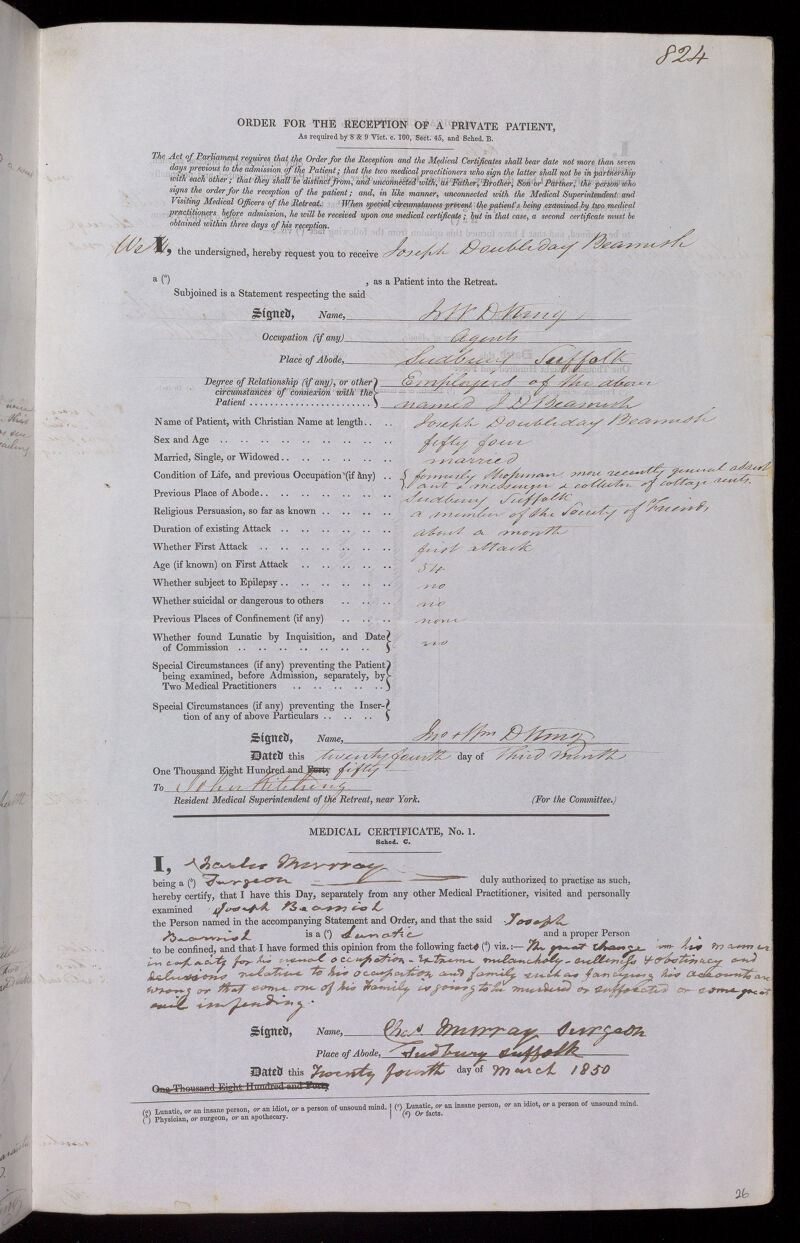 824
ORDER FOR THE RECEPTION OF A PRIVATE PATIENT,
As required by 8 & 9 Vict. c. 100, Sect. 45, and Sched. B.
The Act of Parliament requires that the Order for the Reception and the Medical Certificates shall bear date not more than seven
days previous to the admission of the Patient; that the two medical practitioners who sign the latter shall not be in partnership
with each other; that they shall be distinct from, and unconnected with, as Father, Brother, Son or Partner, the person who
signs the order for the reception of the patient; and, in like manner, unconnected with the Medical Superintendent and
Visiting Medical Officers of the Retreat. When special circumstances prevent the patient's being examined by two medical
practitioners before admission, he will be received upon one medical certificate; but in that case, a second certificate must be
obtained within three days of his reception.
We I, the undersigned, hereby request you to receive Joseph Doubleday Beamish
a (a) , as a Patient into the Retreat.
Subjoined is a Statement respecting the said
Signed, Name, J & W D King
Occupation (if any) Agents
Place of Abode, Sudbury Suffolk
Degree of Relationship (if any), or other Employers of the above
circumstances of connexion with the
Patient named J D Beamish
Name of Patient, with Christian Name at length Joseph Doubleday Beamish
Sex and Age fifty four
Married, Single, or Widowed married
Condition of Life, and previous Occupation (if any) formerly Shopman more recently general
and a messenger & collector of cottage rents.
Previous Place of Abode Sudbury Suffolk
Religious Persuasion, so far as known a member of the Society of Friends
Duration of existing Attack about a month
Whether First Attack first attack
Age (if known) on First Attack 54
Whether subject to Epilepsy no
Whether suicidal or dangerous to others no
Previous Places of Confinement (if any) none
Whether found Lunatic by Inquisition, and Date
of Commission no
Special Circumstances (if any) preventing the Patient
being examined, before Admission, separately, by
Two Medical Practitioners
Special Circumstances (if any) preventing the Inser-
tion of any of above Particulars
Signed, Name, Jno & Wm D King
Dated this twenty fourth day of third month
One Thousand Eight Hundred and Forty fifty
To John Kitching
Resident Medical Superintendent of the Retreat, near York. (For the Committee.)
MEDICAL CERTIFICATE, No. 1.
Sched. C.
I, Charles Murray
being a (b) Surgeon duly authorized to practise as such,
hereby certify, that I have this Day, separately from any other Medical Practitioner, visited and personally
examined Joseph Beamish
the Person named in the accompanying Statement and Order, and that the said Joseph
Beamish is a (c) Lunatic and a proper Person
to be confined, and that I have formed this opinion from the following facts (d) viz.:— The great change in his manner
incapacity for his usual occupation - extreme melancholy - sullenness & obstinacy and
delusions relative to his occupation and family such as fancying his accounts are
wrong or that some one of his Family is going to be murdered or suffocated or some great
evil impending.
Signed, Name, Chas Murray Surgeon
Place of Abode, Sudbury Suffolk
Dated this Twenty fourth day of March 1850
One Thousand Eight Hundred and Forty
(a) Lunatic, or an insane person, or an idiot, or a person of unsound mind.
(b) Physician, or surgeon, or an apothecary.
(c) Lunatic, or an insane person, or an idiot, or a person of unsound mind.
(d) Or facts.
26